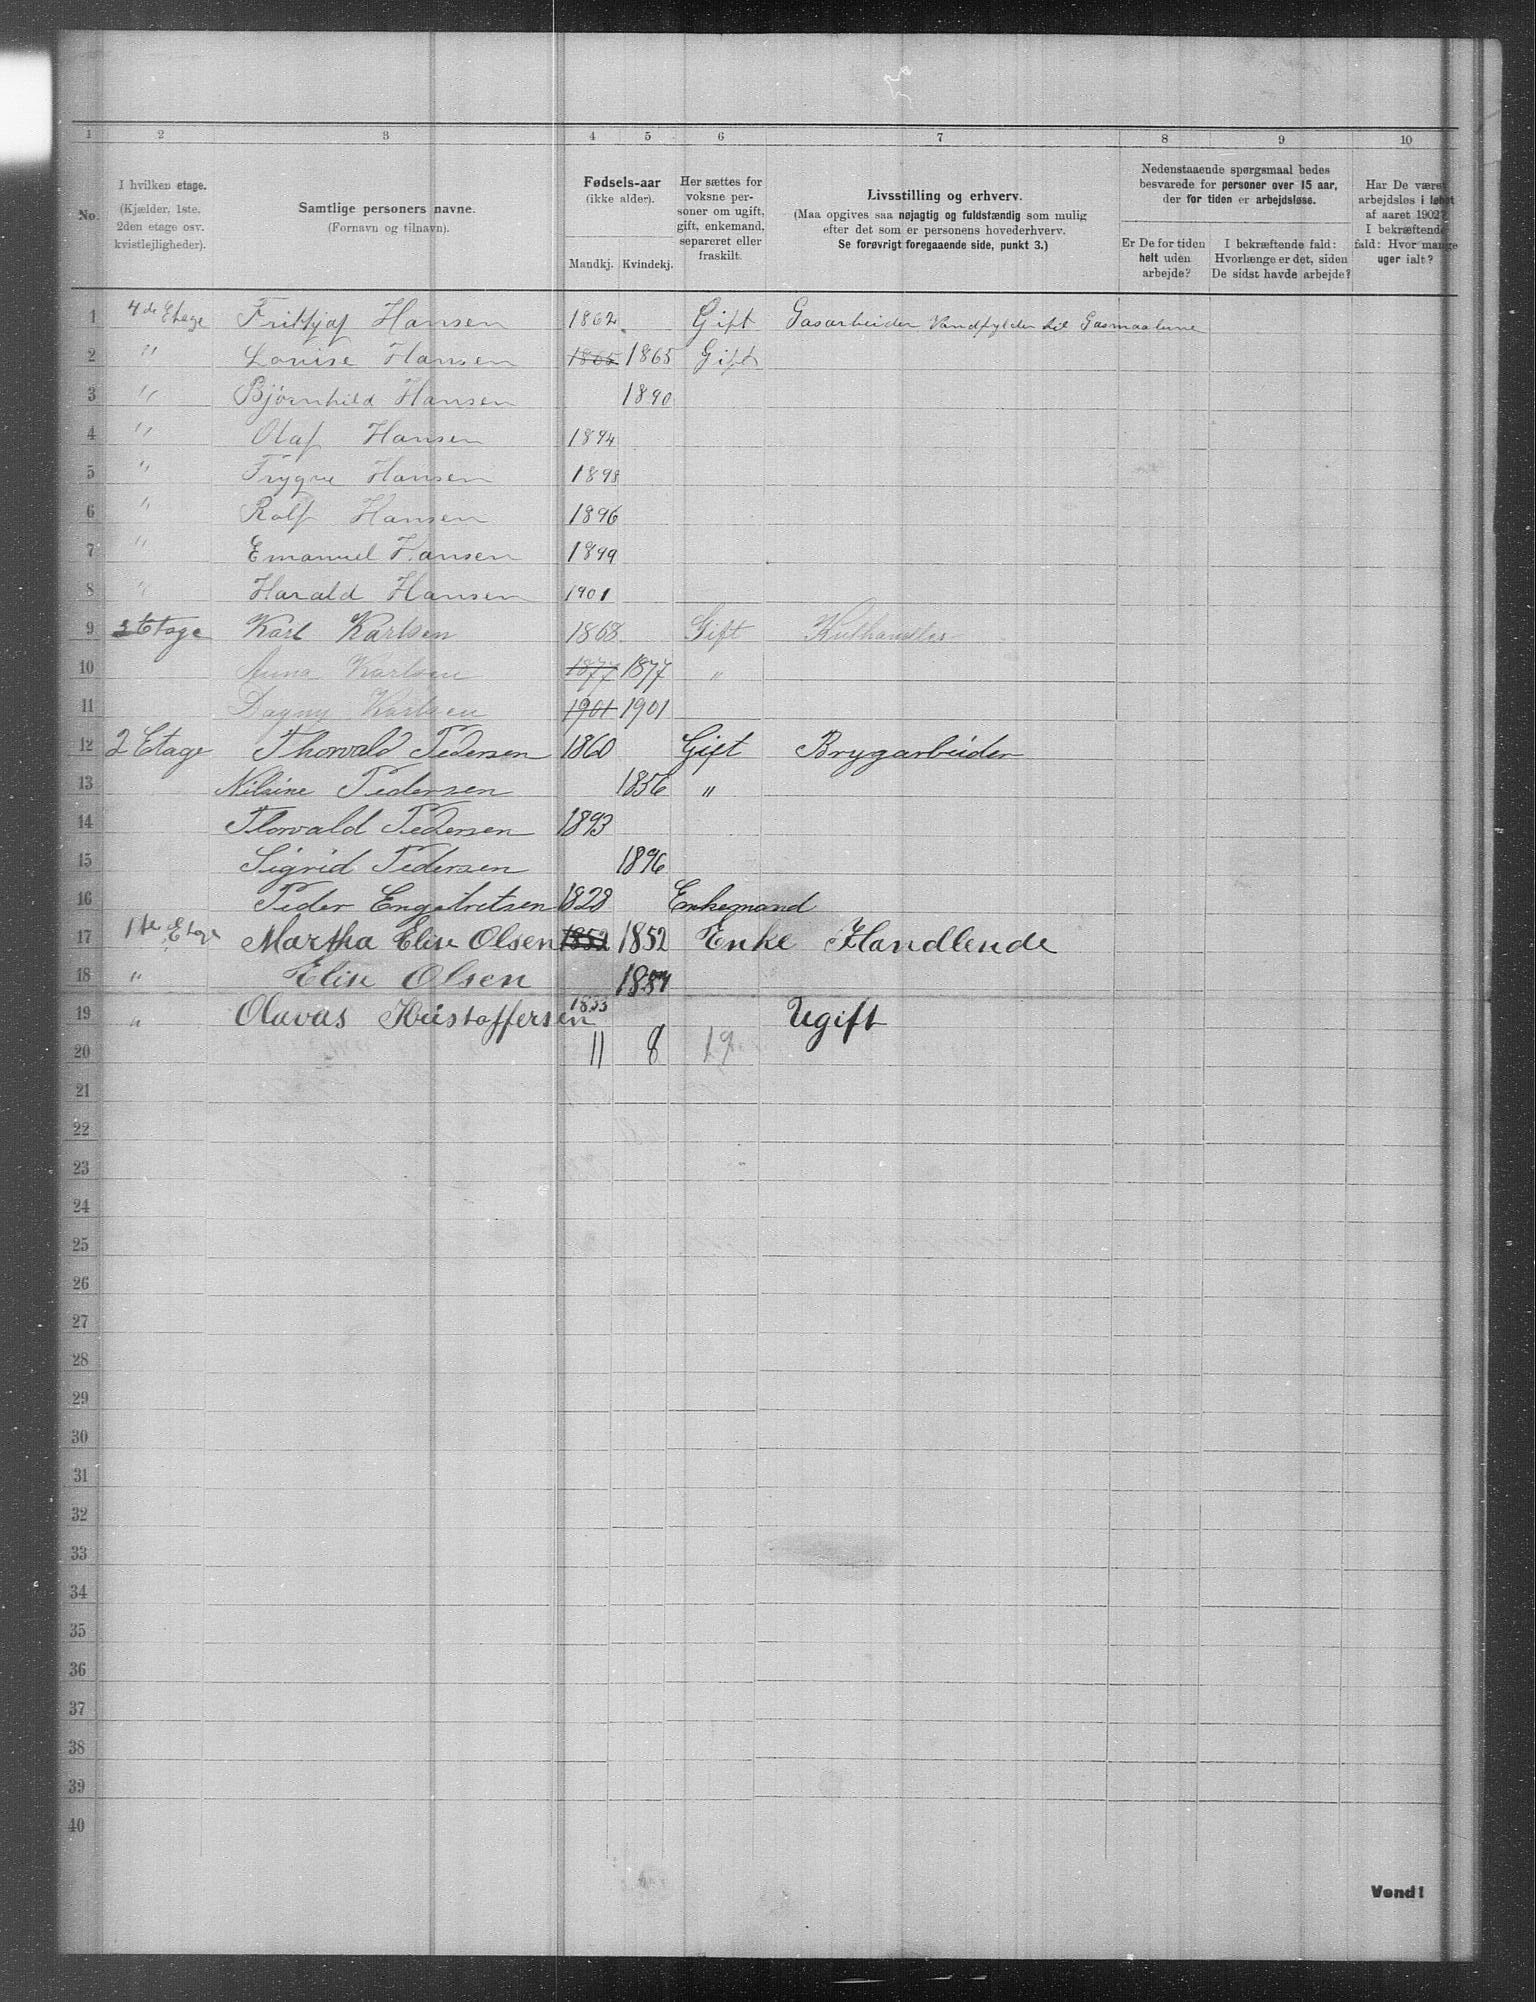 1 2 3 4 5 6 7 8 9 10
No.
I hvilken etage.
(Kjælder, 1ste,
2den etage osv.
kvistlejligheder).
Samtlige personers navne.
(Fornavn og tilnavn).
Fødsels-aar
(ikke alder).
Mandkj. Kvindekj.
Her sættes for
voksne per-
soner om ugift,
gift, enkemand,
separeret eller
fraskilt.
Livsstilling og erhverv.
(Maa opgives saa nøjagtig og fuldstændig som mulig
efter det som er personens hovederhverv.
Se forøvrigt foregaaende side, punkt 3.)
Nedenstaaende spørgsmaal bedes
besvarede for personer over 15 aar,
der for tiden er arbejdsløse.
Er De for tiden
helt uden
arbejde?
I bekræftende fald:
Hvorlænge er det, siden
De sidst havde arbejde?
Har De været
arbejdsløs i løbet
af aaret 1902?
I bekræftende
fald: Hvor mange
uger ialt?
1 4de Etage Frithjof Hansen 1862 Gift Gasarbeider Vandfylder til Gasmaalerne
2 " Lovise Hansen 1865 1865 Gift
3 " Bjørnhild Hansen 1890
4 " Olaf Hansen 1894
5 " Trygve Hansen 1898
6 " Rolf Hansen 1896
7 " Emanuel Hansen 1899
8 " Harald Hansen 1901
9 Etage Karl Karlsen 1868 Gift Kulhandler
10 Anna Karlsen 1877 1877 "
11 Dagny Karlsen 1901 1901
12 2 Etage Thorvald Pedersen 1860 Gift Brygarbeider
13 Nilsine Pedersen 1856 "
14 Thorvald Pedersen 1893
15 Sigrid Pedersen 1896
16 Peder Engebretsen 1828 Enkemand
17 1ste Etage Martha Elise Olsen 1852 1852 Enke Handlende
18 " Elise Olsen 1884
19 " Olavas Kristoffersen 1833 Ugift
20 11 8 19
21
22
23
24
25
26
27
28
29
30
31
32
33
34
35
36
37
38
39
40
Vend!